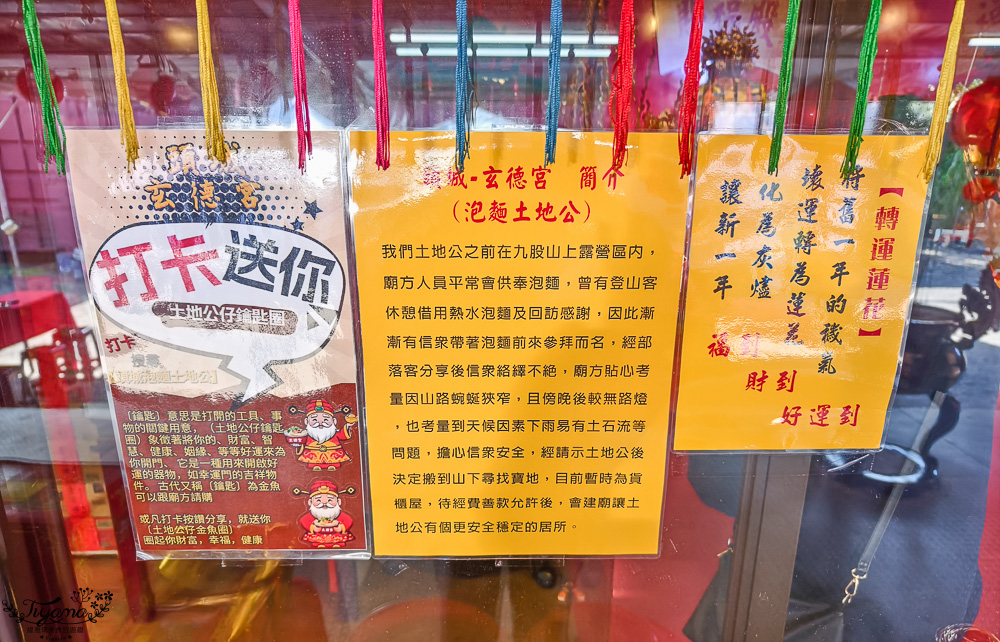 玄德宮
打卡送你
土地公仔鑰匙圈
打卡
搜尋
泡麵土地公】
〔鑰匙〕意思是打開的工具、事
物的關鍵用意，〔土地公仔鑰匙
圈〕象徵著將你的、財富、智
慧、健康、姻緣、等等好運來為
你開門、它是一種用來開啟好
運的器物，如幸運門的吉祥物
件。 古代又稱〔鑰匙〕為金魚
可以跟廟方請購
或凡打卡按讚分享，就送你
〔土地公仔金魚圈〕
圈起你財富，幸福，健康
城-玄德宮 簡介
（泡麵土地公）
我們土地公之前在九股山上露營區內，
廟方人員平常會供奉泡麵，曾有登山客
休憩借用熱水泡麵及回訪感謝，因此漸
漸有信眾帶著泡麵前來參拜而名，經部
落客分享後信眾絡繹不絕，廟方貼心考
量因山路蜿蜒狹窄，且傍晚後較無路燈
，也考量到天候因素下雨易有土石流等
問題，擔心信眾安全，經請示土地公後
決定搬到山下尋找寶地，目前暫時為貨
櫃屋，待經費善款允許後，會建廟讓土
地公有個更安全穩定的居所。
【轉運蓮花】
將舊一年的穢氣
壞運轉為蓮花
化為灰燼
讓新一年
福到
財到
好運到
Tiyama